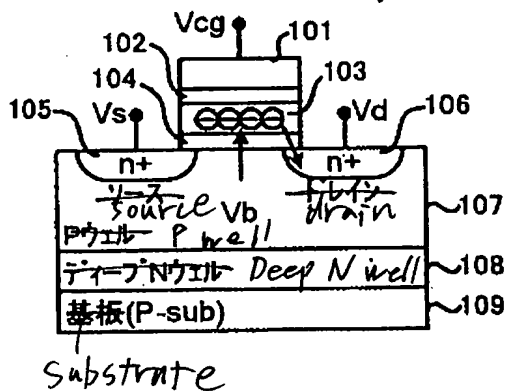 Vcg
101
102
103
104
105
Vs
Vd
106
n+
n+
ソース
ドレイン
source
Vb
drain
107
Pウェル P well
ディープNウェル Deep N well
108
基板(P-sub)
109
substrate